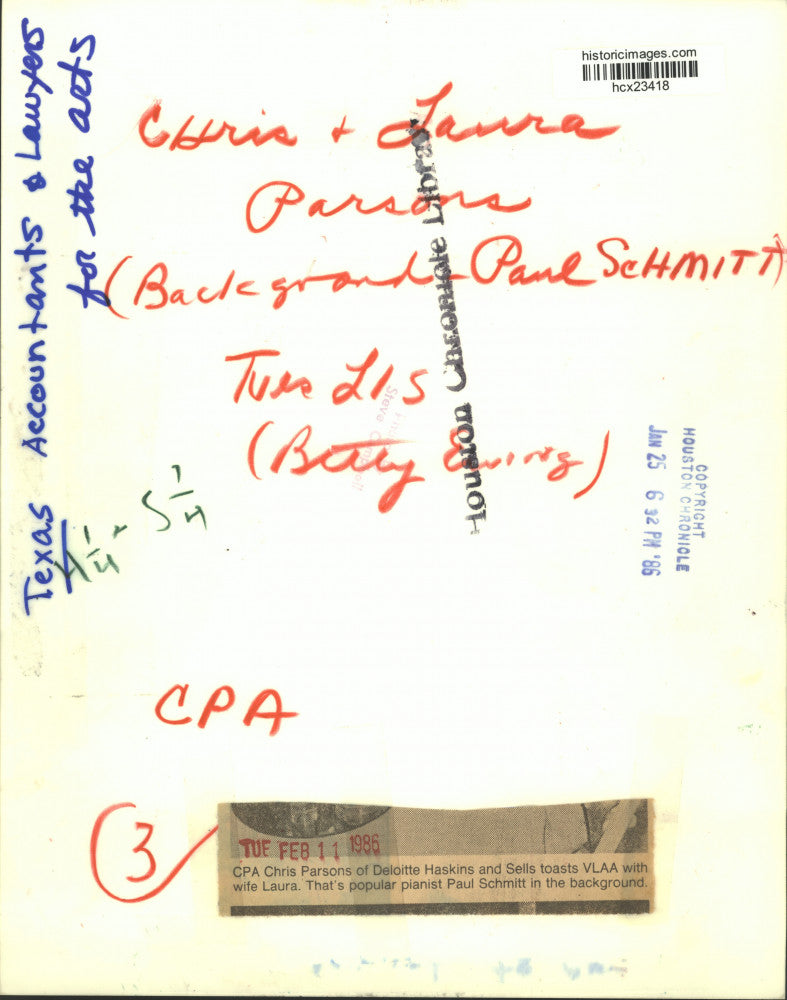 historicimages.com
hcx23418
Texas Accountants & Lawyers
for the arts
CHris + Laura
Parsons
(Background - Paul SCHMITT)
Tues L1S
(Betty Ewing)
Houston Chronicle Library
Steve Campbell
COPYRIGHT
HOUSTON CHRONICLE
JAN 25 6 32 PM '86
4 1/4 - 5 1/4
CPA
3
TUE FEB 11 1986
CPA Chris Parsons of Deloitte Haskins and Sells toasts VLAA with
wife Laura. That's popular pianist Paul Schmitt in the background.